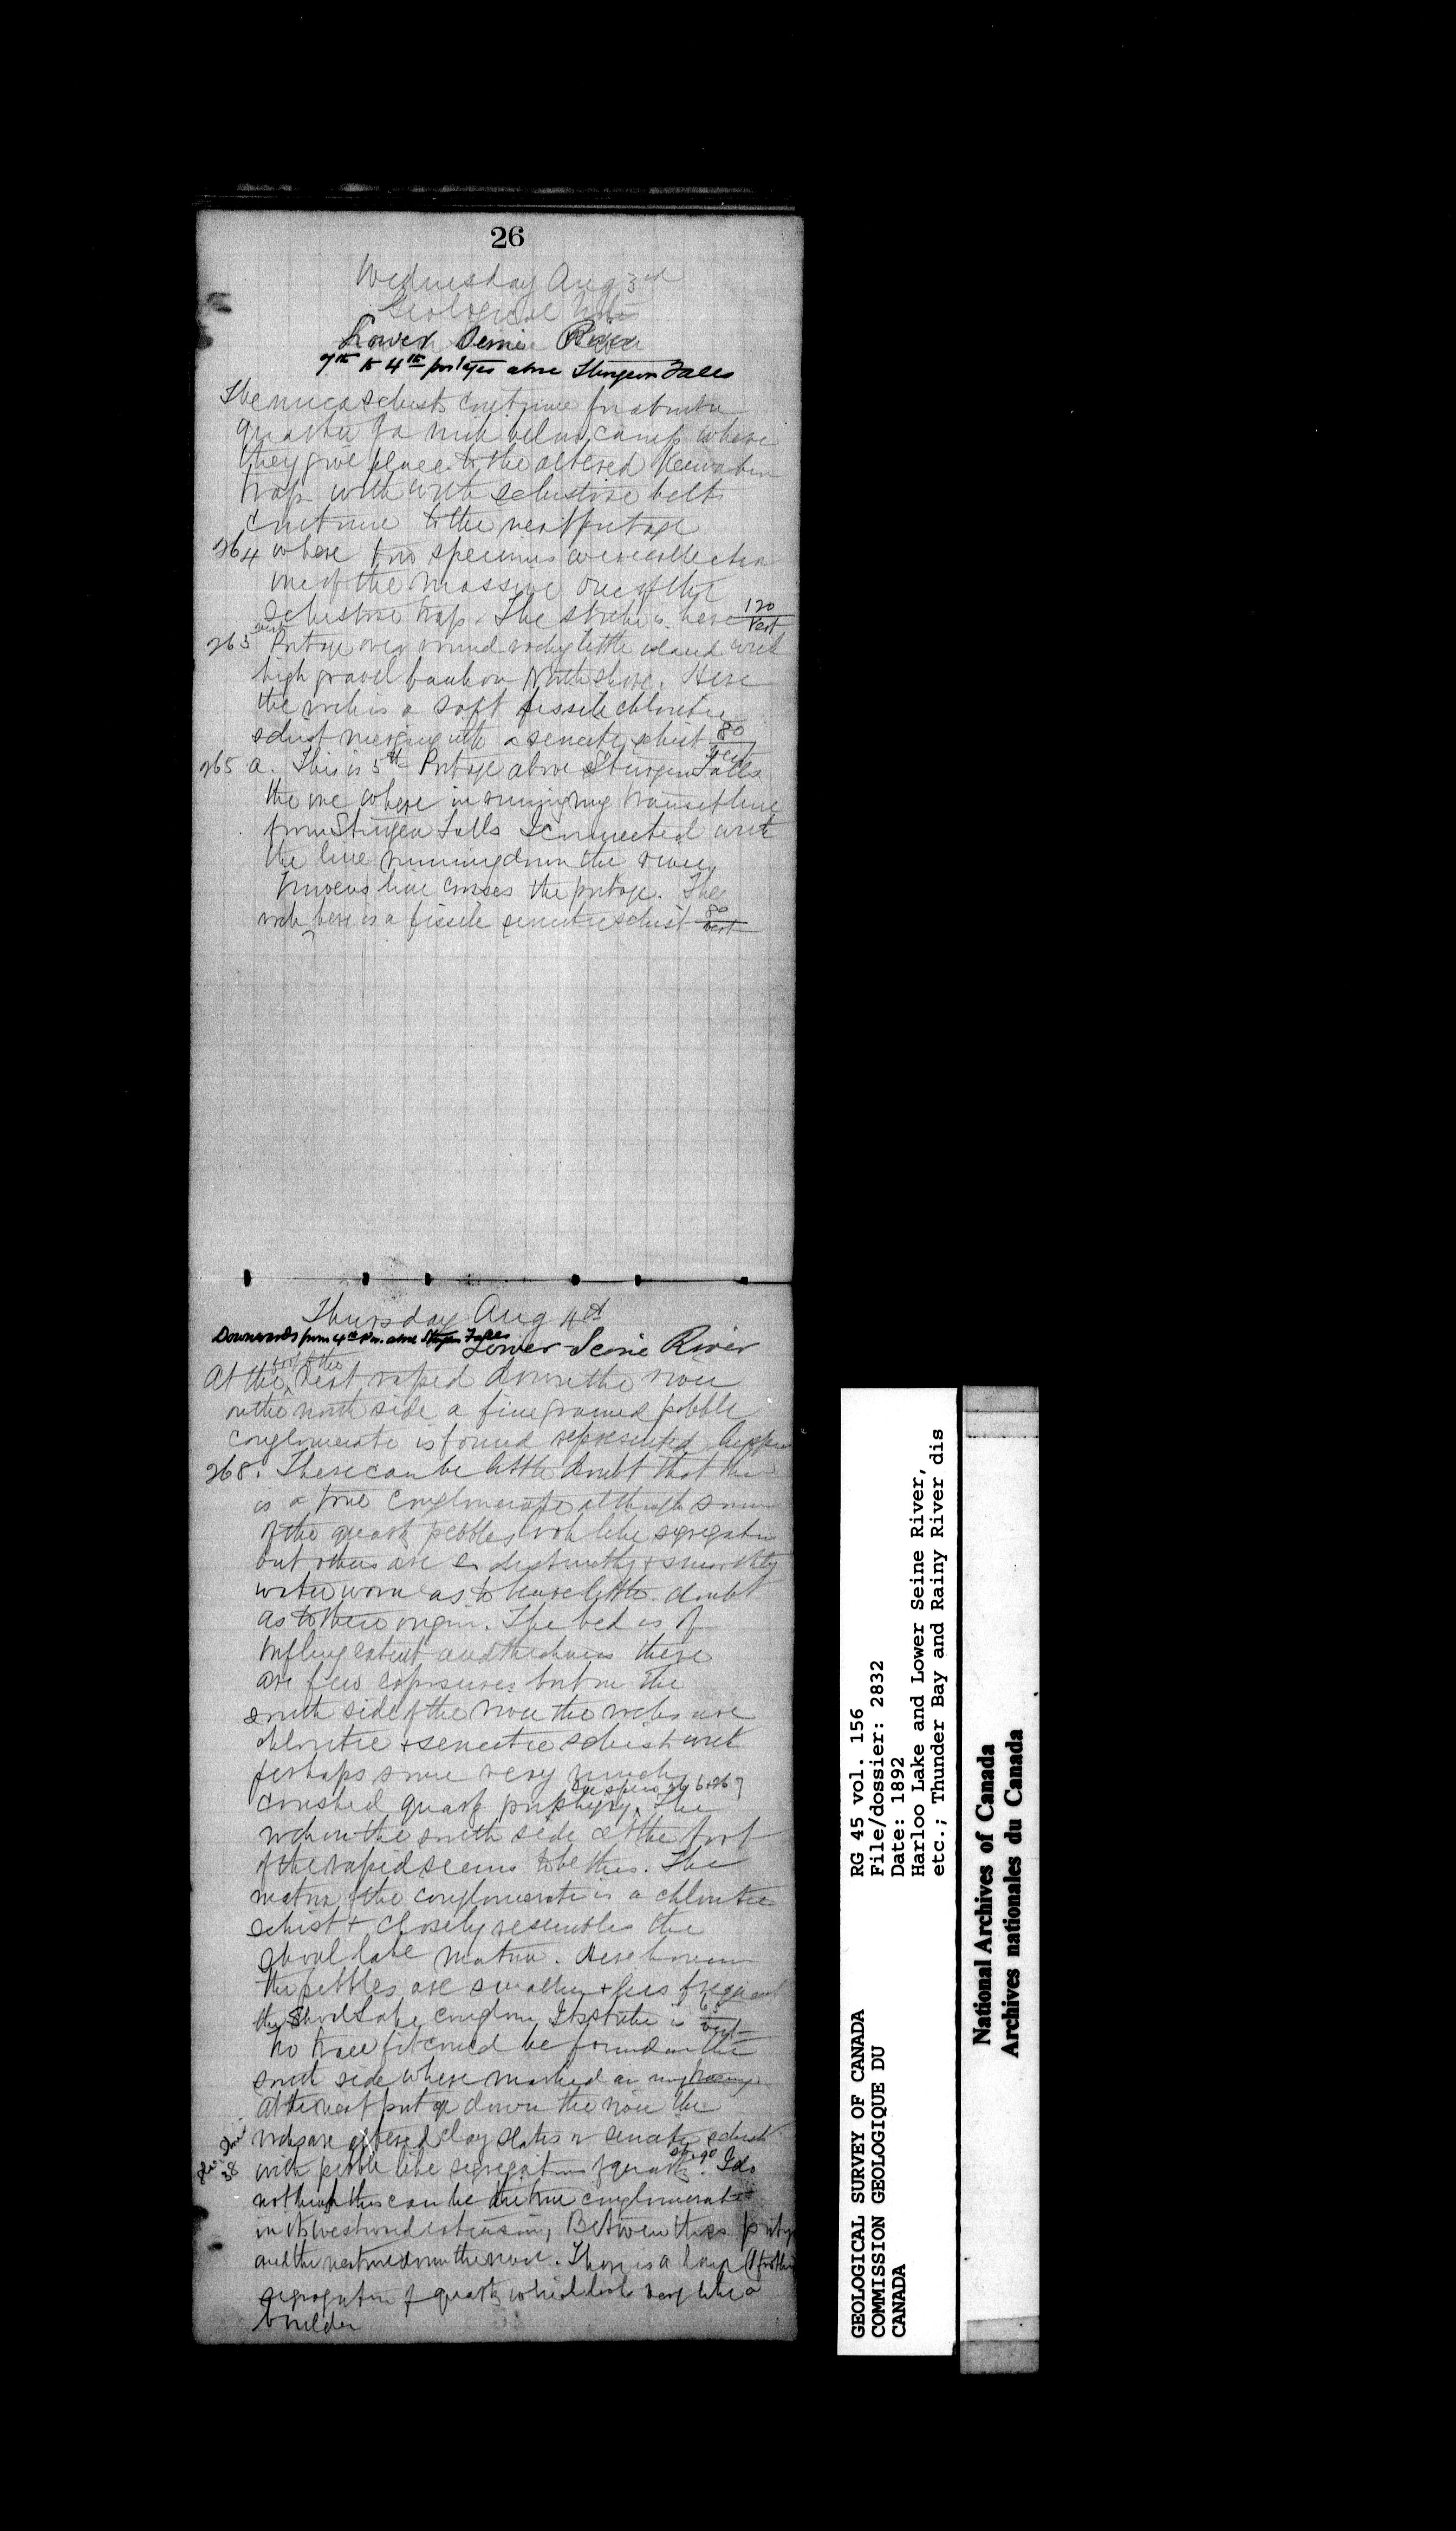 26
Wednesday Aug 3rd
Geological Notes
Lower Seine River
7th to 4th portages above Sturgeon Falls
The mica schists continue for about a
quarter of a mile below camp where
they give place to the altered Keewatin
trap with with schistose belts
continue to the next portage
264 where two specimens were collected
one of the massive one of the
schistose trap. The strike is here 120/vert
265 Portage over round rocky little island with
high gravel bank on North shore. Here
the rock is a soft fissile chloritic
schist merging into a sericite schist 80/vert
265 a. This is 5th Portage above Sturgeon Falls
the one where in running my transit line
from Sturgeon Falls I connected with
the line running down the river
line crosses the portage. The
rock here is a fissile sericitic schist 80/vert
Thursday Aug 4th
Downwards from 4th Por. above Sturgeon Falls
Lower Seine River
At the foot of the next rapid down the river
on the north side a fine grained pebble
conglomerate is found represented by spec
268. There can be little doubt that this
is a true conglomerate although some
of the quartz pebbles look like segregations
but others are so distinctly & smoothly
water worn as to leave little doubt
as to their origin. The bed is of
trifling extent and thickness there
are few exposures but on the
south side of the river the rocks are
chloritic & sericitic schist with
perhaps some very much
crushed quartz porphyry. See specs 266 & 267 The
rock on the south side at the foot
of the rapid seems to be this. The
matrix of the conglomerate is a chloritic
schist & closely resembles the
Shoal Lake matrix. Here however
the pebbles are smaller & less frequent
the Shoal Lake conglom. Its strike is 65/vert
No trace of it could be found on the
south side where marked on my
At the next portage down the river the
rocks are altered clay slates or sericite schist
with pebble like segregations of quartz. I do
not think this can be the true conglomerate
in its westward extension. Between this portage
and the next one down the river. There is a large
segregation of quartz which looks very like a
boulder
GEOLOGICAL SURVEY OF CANADA
COMMISSION GEOLOGIQUE DU
CANADA
RG 45 vol. 156
File/dossier: 2832
Date: 1892
Harloo Lake and Lower Seine River,
etc.; Thunder Bay and Rainy River dis
National Archives of Canada
Archives nationales du Canada